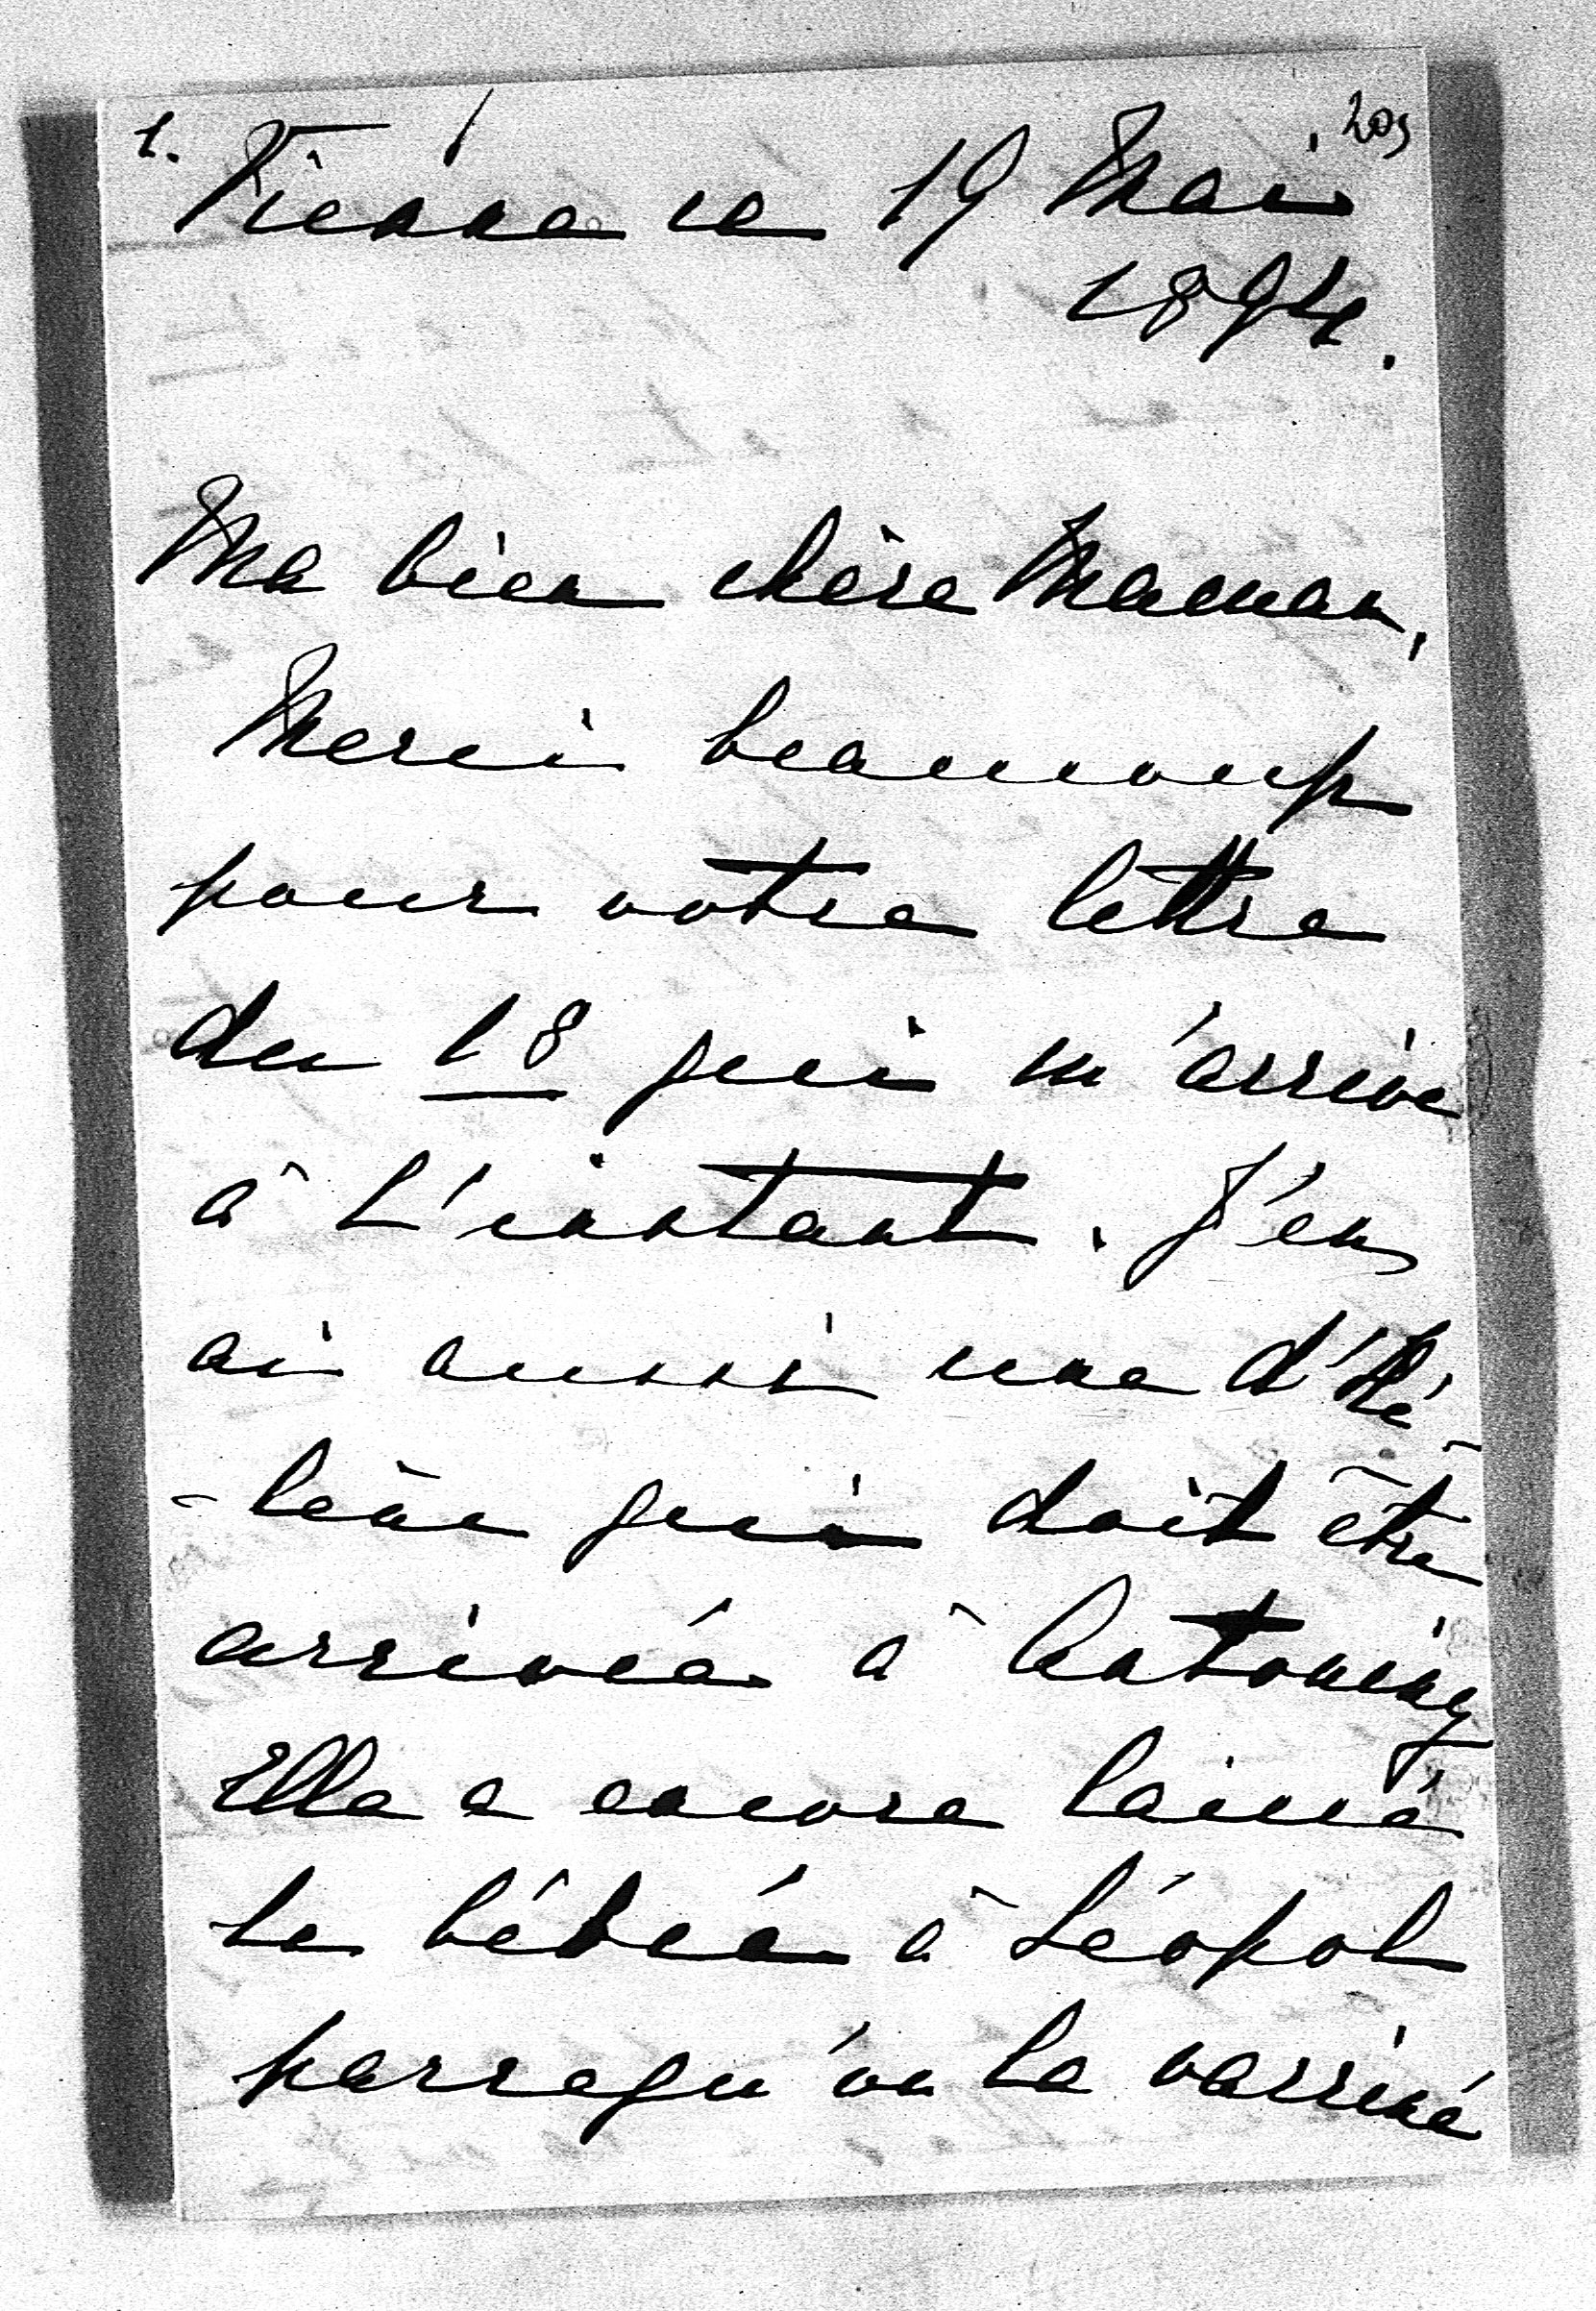 1. Vienne ce 19 Mai 209
1894.
Ma bien chère Maman,
Merci beaucoup
pour votre lettre
du 18 qui m'arrive
à l'instant. J'en
ai aussi une d'Hé-
-lène qui doit être
arrivée à Antoniny
Elle a encore laissé
le bébé à Léopol
parcequ'on l'a vacciné